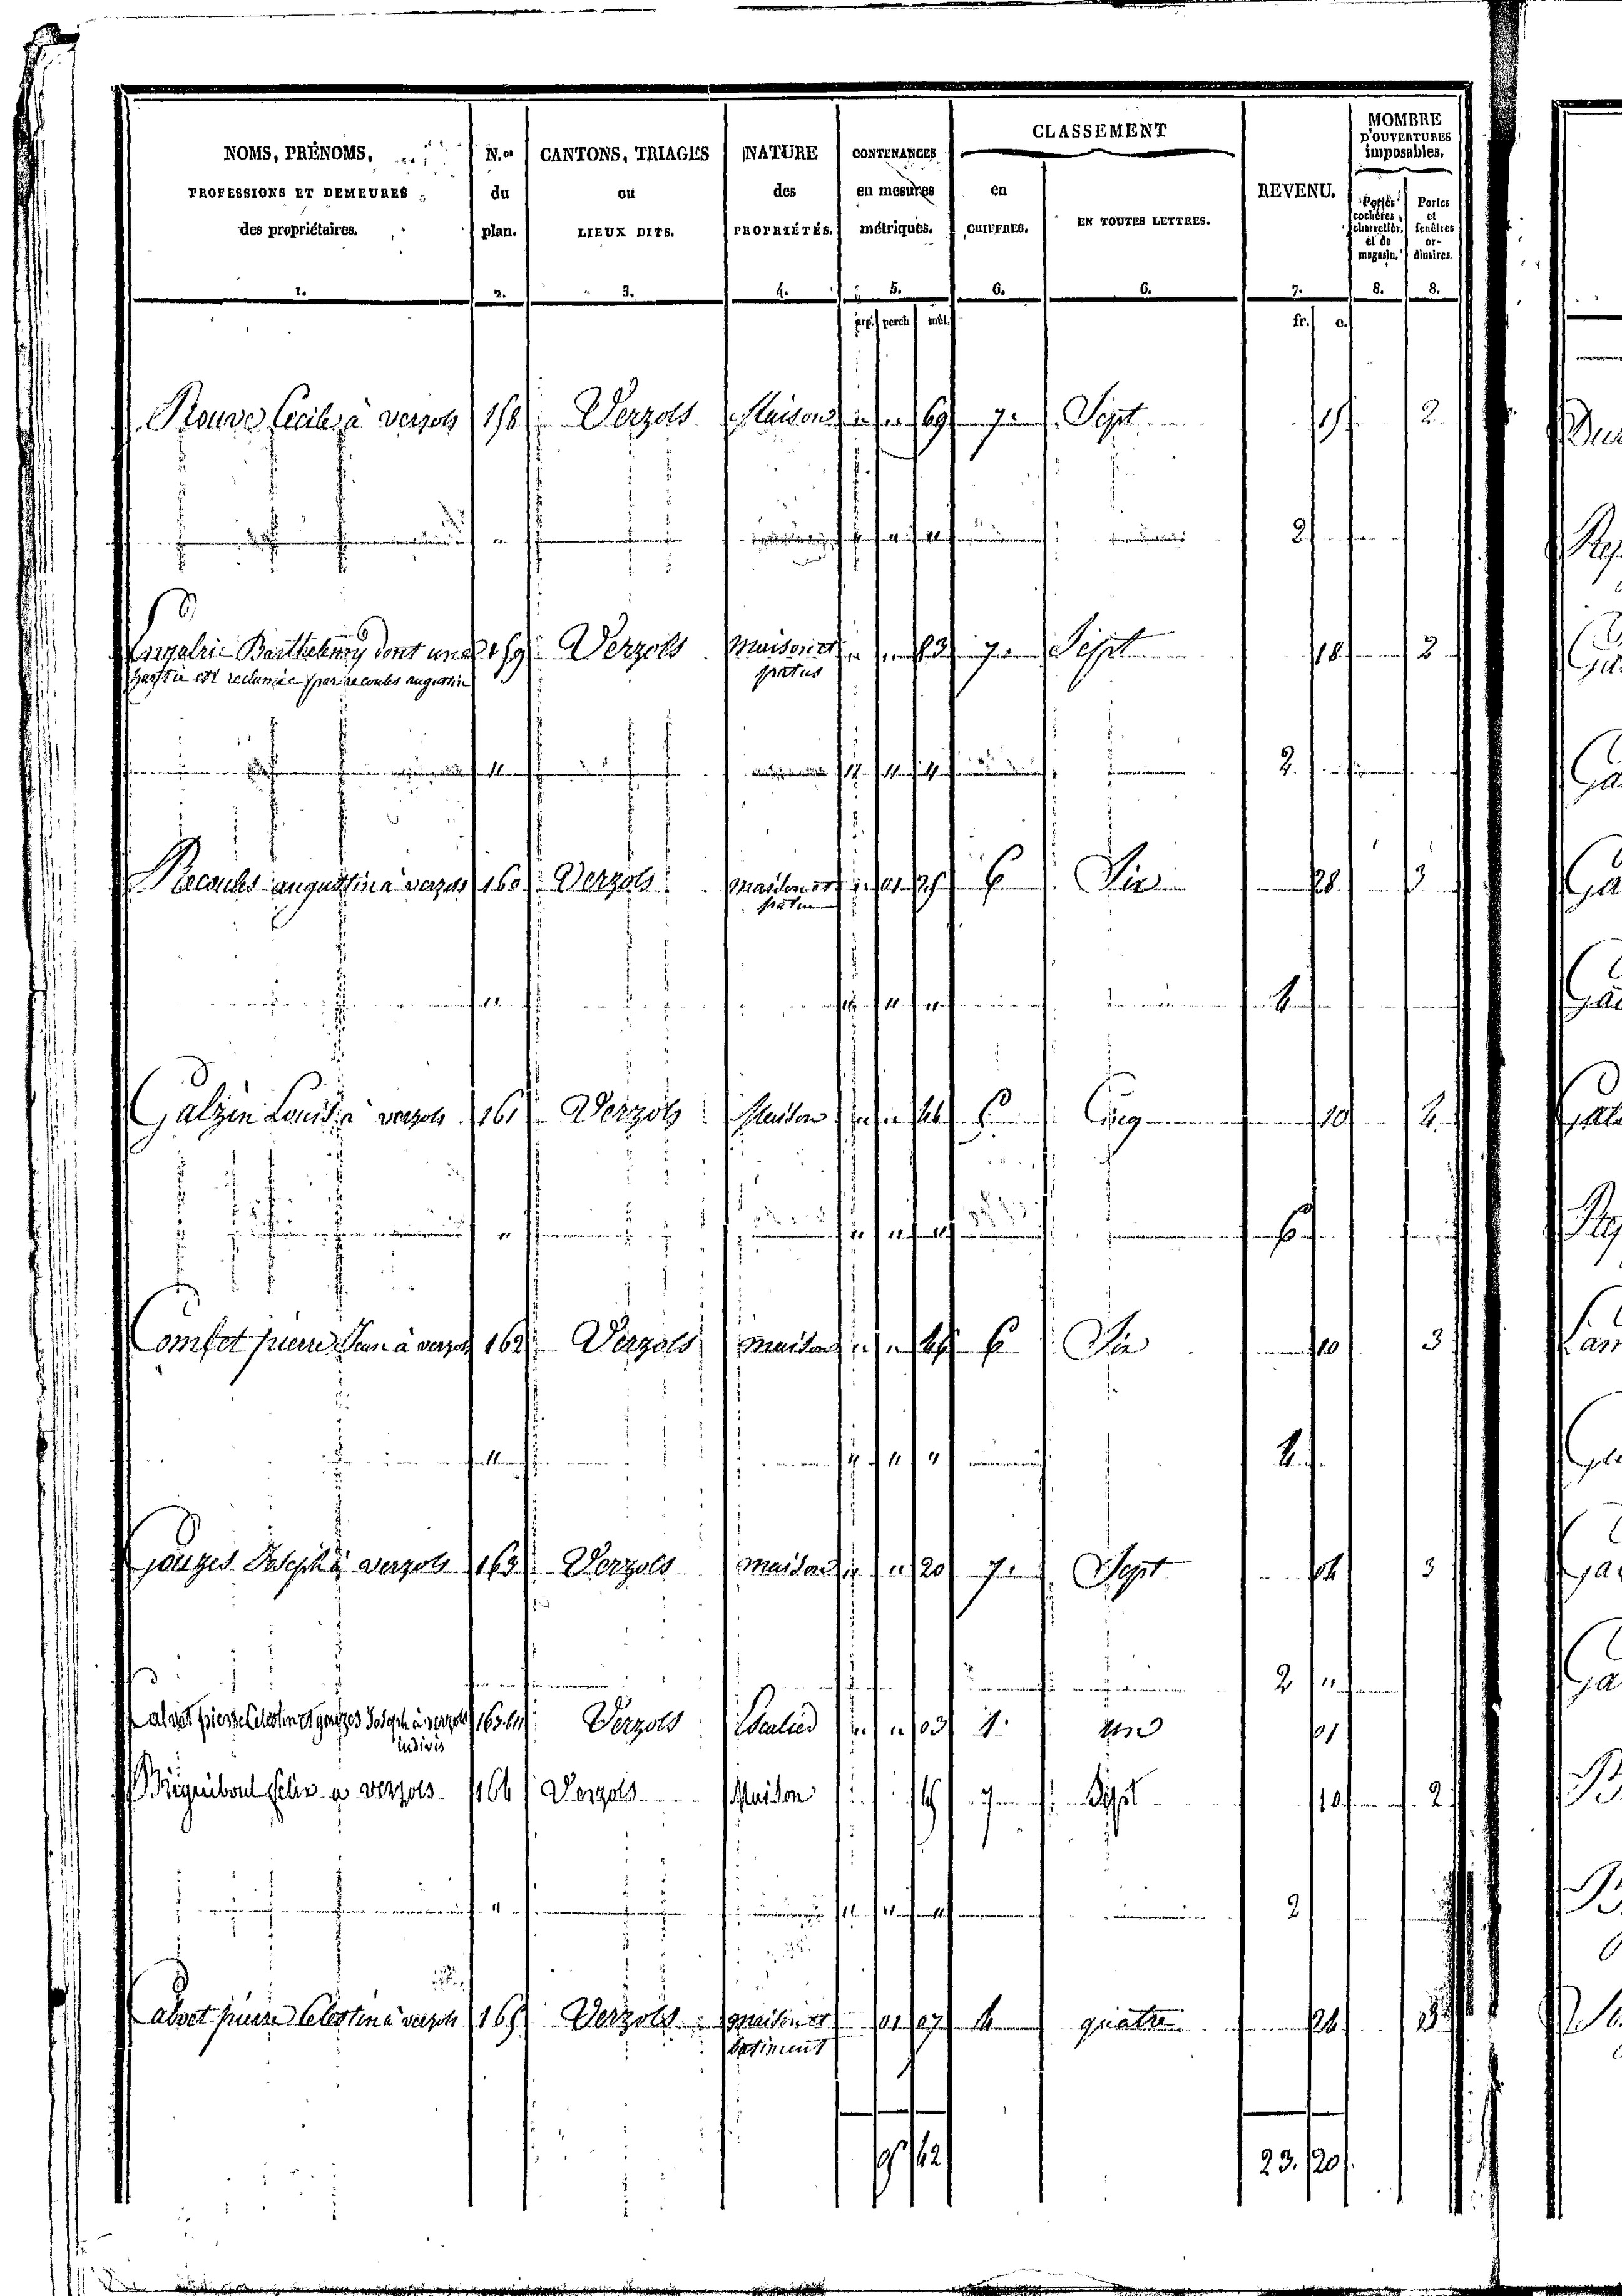 NOMS, PRÉNOMS, PROFESSIONS ET DEMEURES des propriétaires. 1.
N.os du plan. 2.
CANTONS, TRIAGES ou LIEUX DITS. 3.
NATURE des PROPRIÉTÉS. 4.
CONTENANCES en mesures métriques. 5.
CLASSEMENT
en CHIFFRES. 6.
EN TOUTES LETTRES. 6.
REVENU. 7.
MOMBRE D'OUVERTURES imposables.
Portes cochères, charretièr. et de magasin. 8.
Portes et fenêtres ordinaires. 8.
arp. perch mèt. fr. c.
Rouve Cecile à verzols 158 Verzols Maison " " 69 7. Sept 15 2
" " " " 2
Barthelemy dont une 159 Verzols Maison et " " 83 7. Sept 18 2
partie est reclamée par recoules augustin patus
" " " " 2
Recoules augustin à verzols 160 Verzols Maison et " 01 25 6 Six 28 3
patus
" " " " 4
Galzin Louis à verzols 161 Verzols Maison " " 44 5 Cinq 10 4
" " " " 6
Combet pierre Jean à verzols 162 Verzols maison " " 45 6 Six 10 3
" " " " 4
gauzes Joseph à verzols 163 Verzols maison " " 20 7. Sept 04 3
2 "
Calvet pierre Celestin et gauzes Joseph à verzols 163 bis Verzols Escalier " " 03 1. une 01
indivis
Briguiboul felix a verzols 164 Verzols Maison 45 7 Sept 10 2
" " " " 2
Calvet pierre Celestin à verzols 165 Verzols Maison et 01 07 4 quatre 24 13
batiment
5 42 23. 20